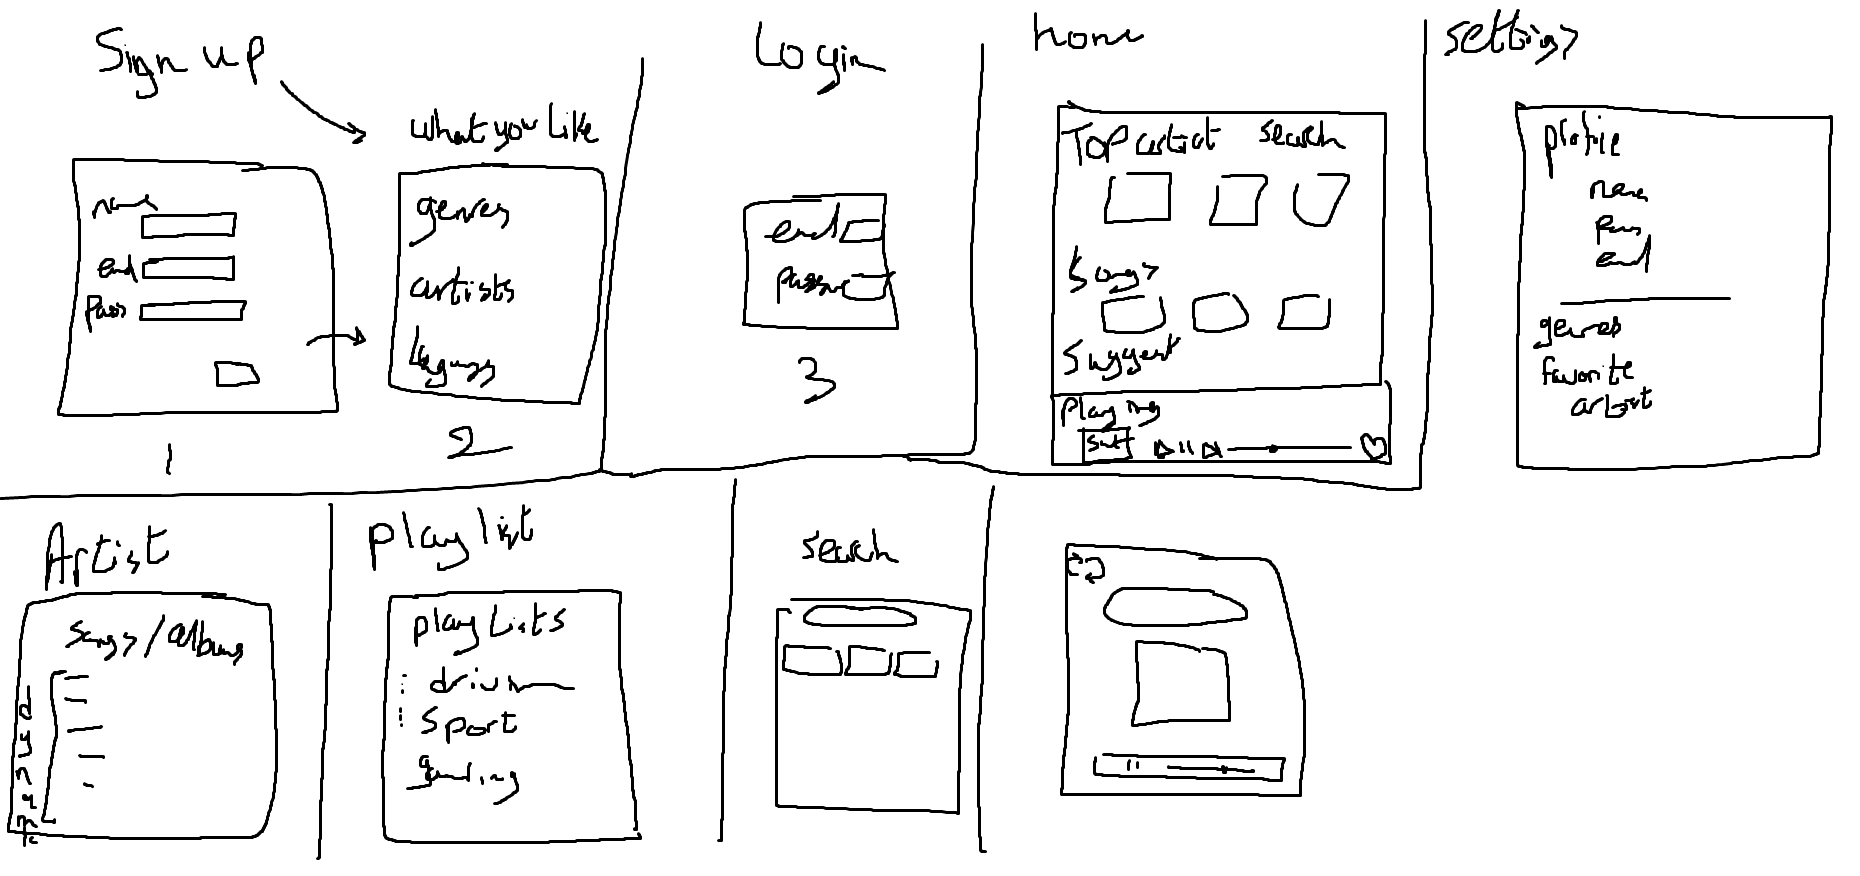 Sign up
what you like
name
email
pass
genres
artists
1
2
Login
email
passw
3
home
Top artist search
songs
suggest
playing
settings
profile
name
pass
email
genres
favorite
artist
Artist
songs/albums
playlist
playlists
sport
search